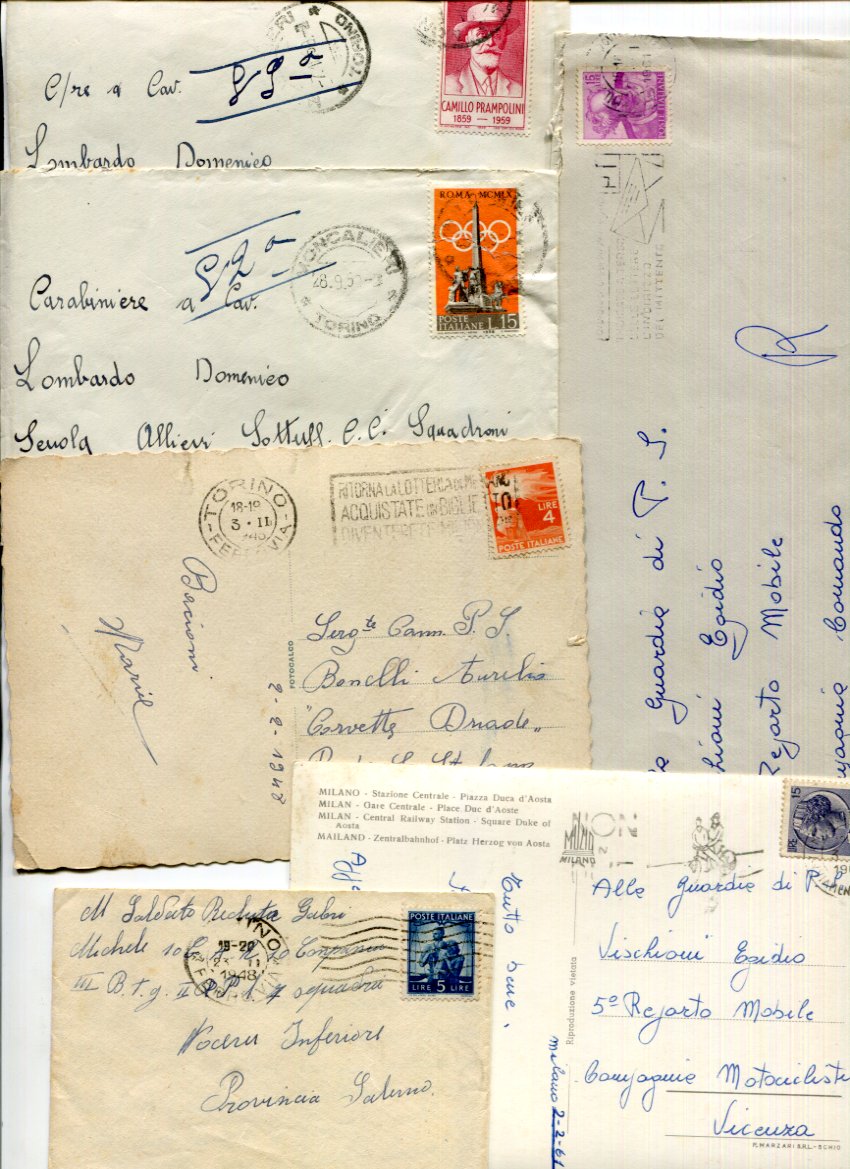 TORINO
C/re a Cav.
Lombardo Domenico
CAMILLO PRAMPOLINI
1859 — 1959
ROMA MCMLX
POSTE
ITALIANE L.15
MONCALIERI
28.9.59
TORINO
Carabiniere a Cav.
Lombardo Domenico
Scuola Allievi Sottuff. C.C. Squadroni
POSTE ITALIANE
1961
DEL MITTENTE
R
Guardia di P. S.
Egidio
Reparto Mobile
Comando
TORINO
18-19
3 · II
FERROVIA
RITORNA LA LOTTERIA DI
ACQUISTATE un BIGLIETTO
LIRE
4
POSTE ITALIANE
Bacioni
Marie
2-2-1948
FOTOCALCO
Serg.te Cann. P. S
Bonelli Aurelio
"Corvetta Driade"
MILANO - Stazione Centrale - Piazza Duca d'Aosta
MILAN - Gare Centrale - Place Duc d'Aoste
MILAN - Central Railway Station - Square Duke of
Aosta
MAILAND - Zentralbahnhof - Platz Herzog von Aosta
MILANO
15
LIRE
Tutto bene.
Milano 2-2-61
Riproduzione vietata
Alla Guardia di P.S.
Vischioni Egidio
5º Reparto Mobile
Compagnia Motociclisti
Vicenza
P. MARZARI S.R.L. - SCHIO
M Soldato Recluta Gabri
Michele 10 C.A.R. 10 Compania
III B.t.g. II squadra
Nocera Inferiore
Provincia Salerno
19-20
1948
POSTE ITALIANE
LIRE 5 LIRE